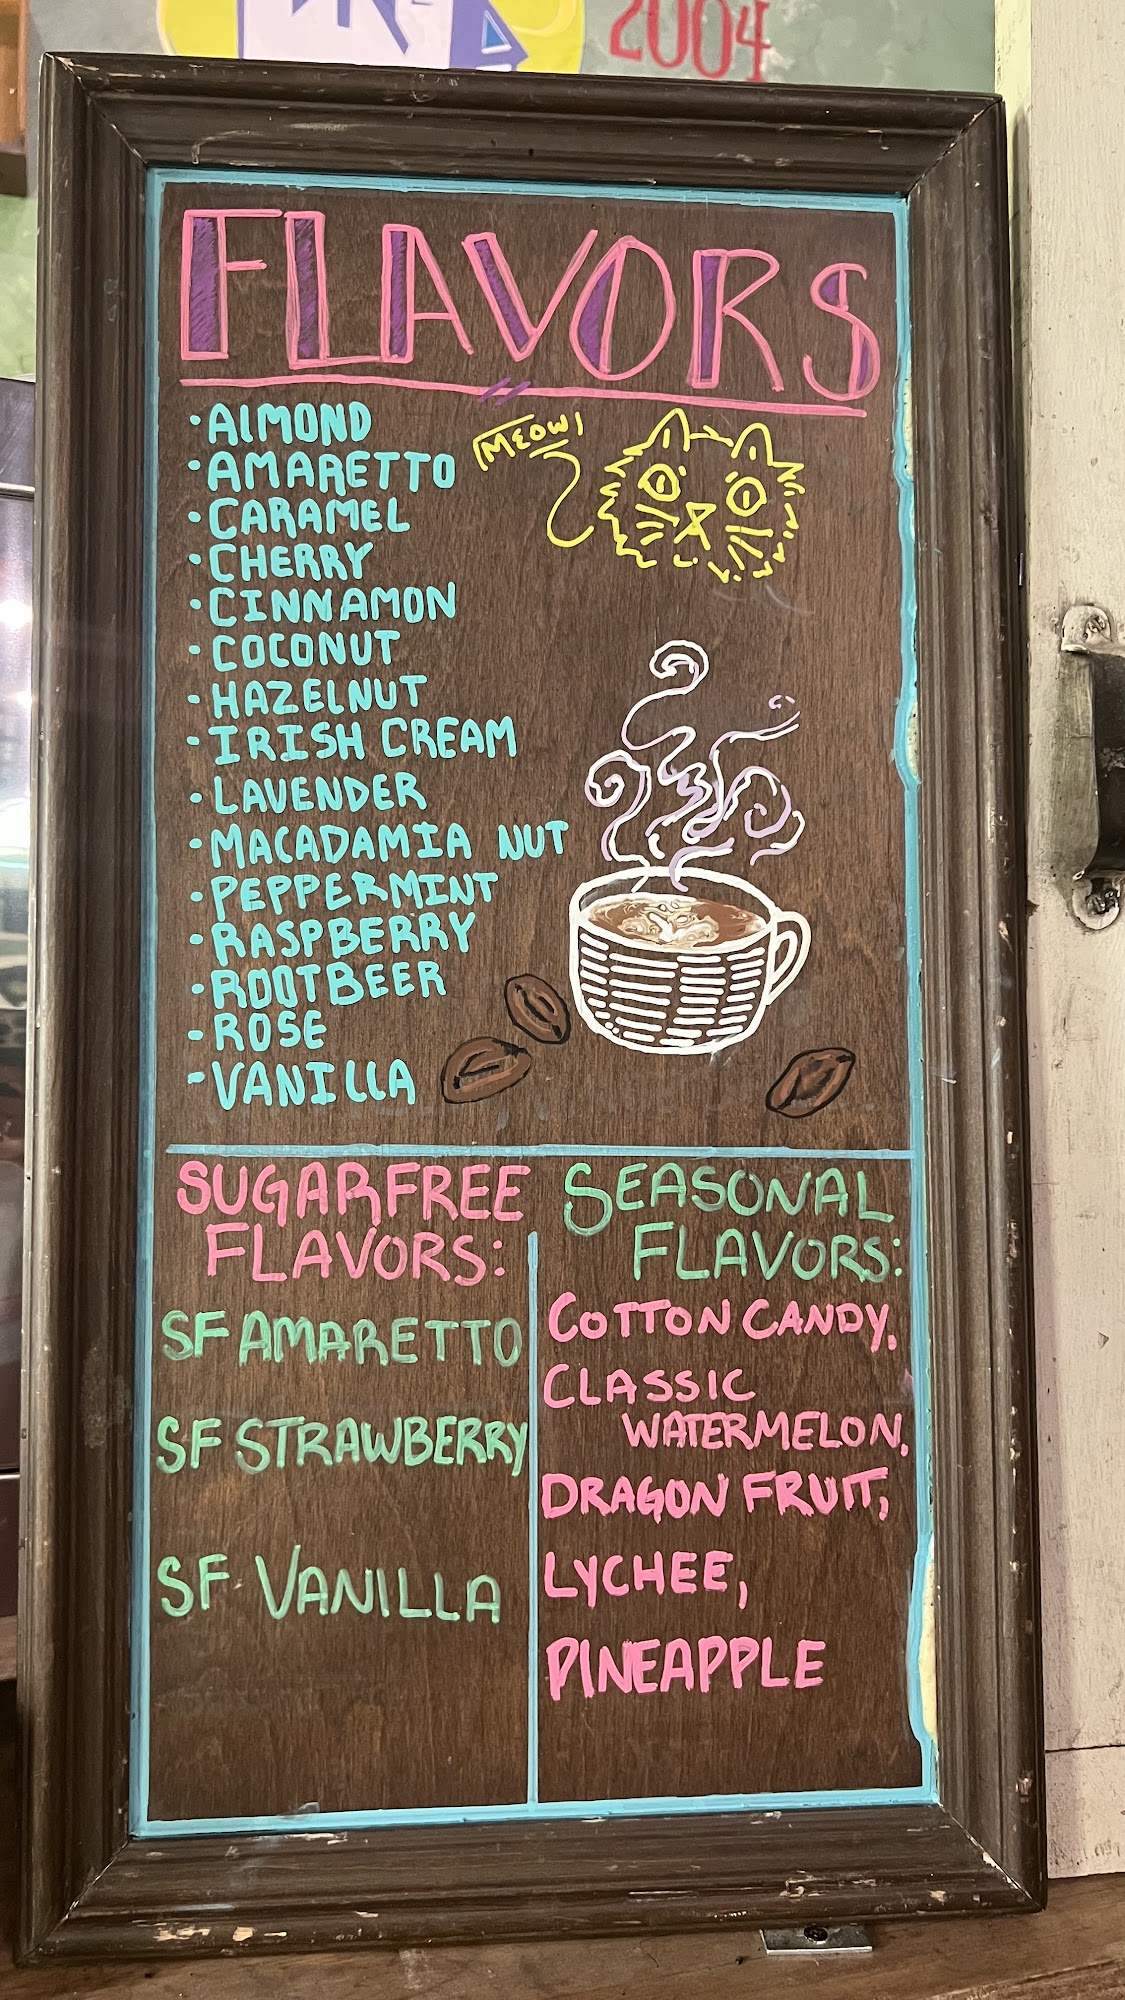 2004
FLAVORS
• ALMOND
• AMARETTO
• CARAMEL
• CHERRY
• CINNAMON
• COCONUT
• HAZELNUT
• IRISH CREAM
• LAVENDER
• MACADAMIA NUT
• PEPPERMINT
• RASPBERRY
• ROOTBEER
• ROSE
• VANILLA
MEOW!
SUGARFREE
FLAVORS:
SF AMARETTO
SF STRAWBERRY
SF VANILLA
SEASONAL
FLAVORS:
COTTON CANDY,
CLASSIC
WATERMELON,
DRAGON FRUIT,
LYCHEE,
PINEAPPLE